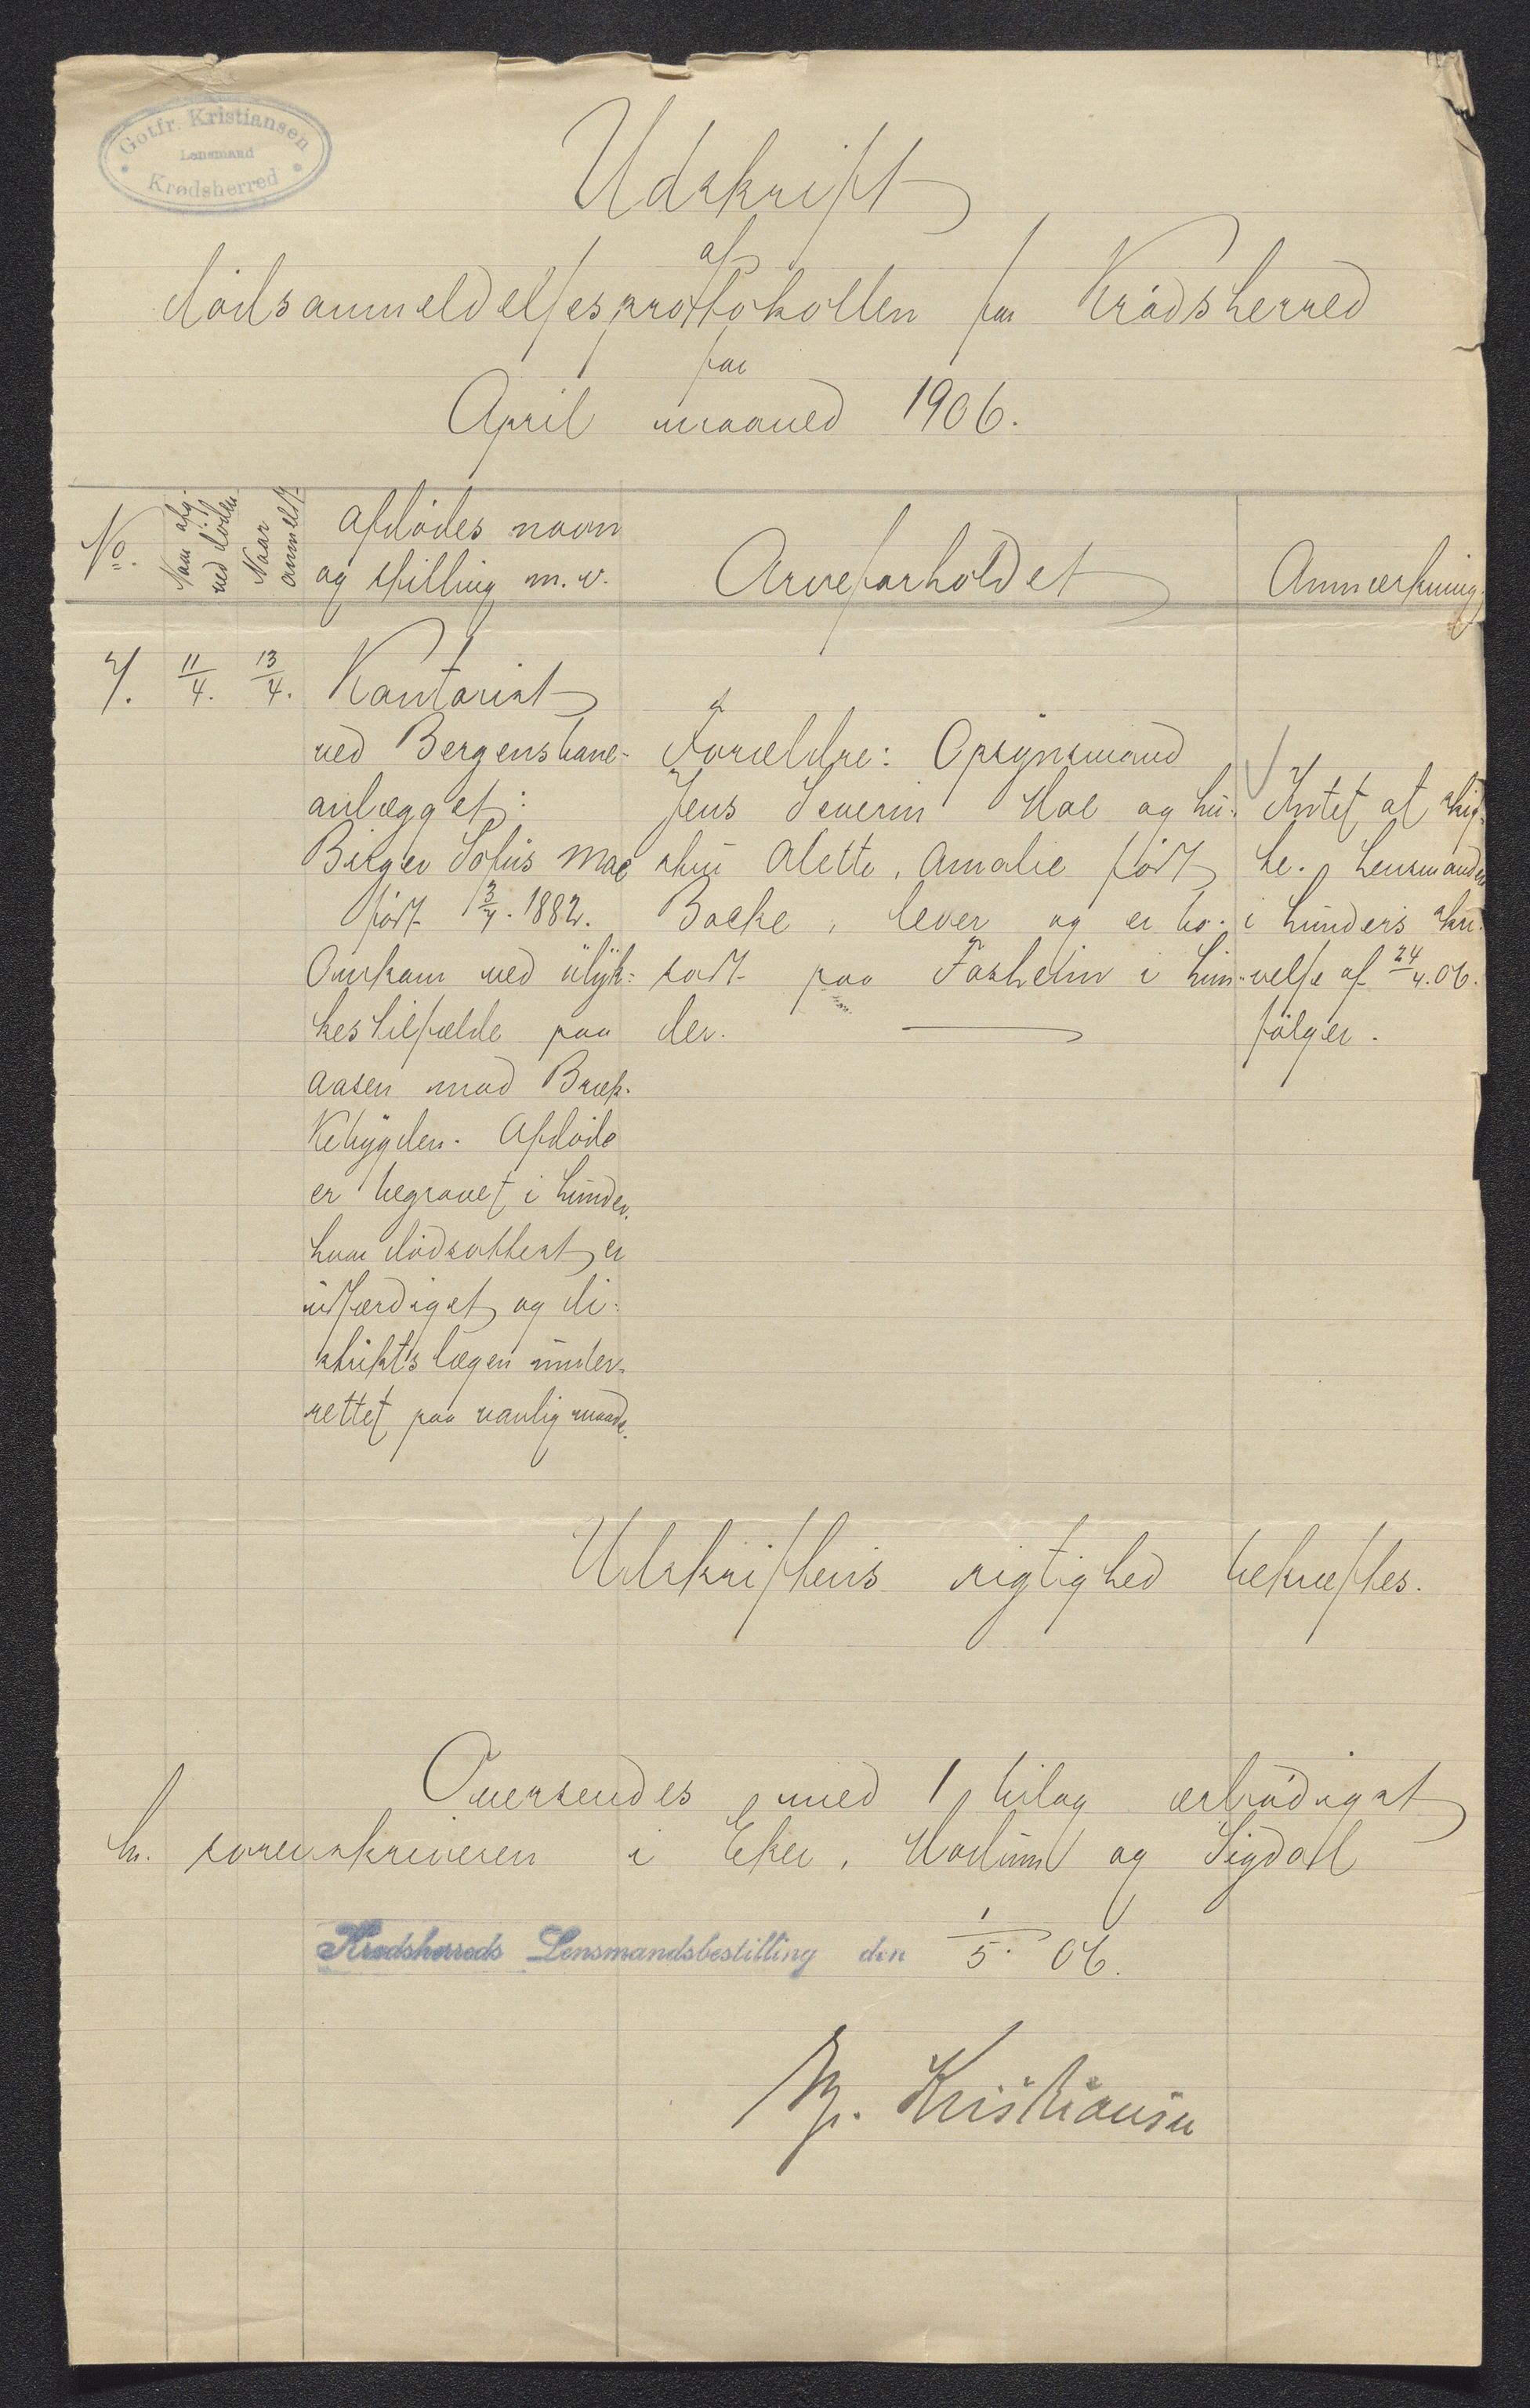 Gotfr. Kristiansen
Lensmand
Krødsherred
Udskrift
af
dødsanmeldelsesprotokollen for Krødsherred
for
April maaned 1906.
No.
Naar afg. ved døden
Naar anmeldt
Afdødes navn
og stilling m.v.
Arveforholdet
Anmerkning
7.
11/4.
13/4.
Kontorist
ved Bergensbane-
anlægget:
Birger Sofus Moe
født 3/7. 1882.
Omkom ved ulyk-
kestilfælde paa
aasen mod Bræk-
kebygden. Afdøde
er begravet i Lunder.
hvor dødsattest er
utfærdiget og di-
striktslægen under-
rettet paa vanlig maade.
Forældre: Opsynsmand
Jens Severin Moe og hu-
stru Alette Amalie født
Bakke, lever og er bo-
sat paa Fosheim i Lun-
der.
Intet at skif-
te. Lensmanden
i Lunders skri-
velse af 24/4. 06.
følger.
Udskriftens rigtighed bekræftes.
Oversendes med 1 bilag ærbødigst
hr. sorenskriveren i Eker, Modum og Sigdal
Krødsherreds Lensmandsbestilling den 1/5. 06.
G. Kristiansen